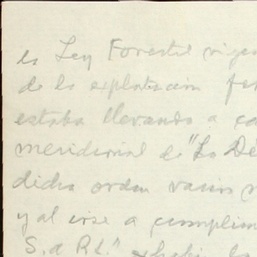 la Ley Forestal vigen
de la explotacion fo
estaba llevando a ca
meridional de "La De
dicha orden varios
y al irse a cumplim
S. de R.L."